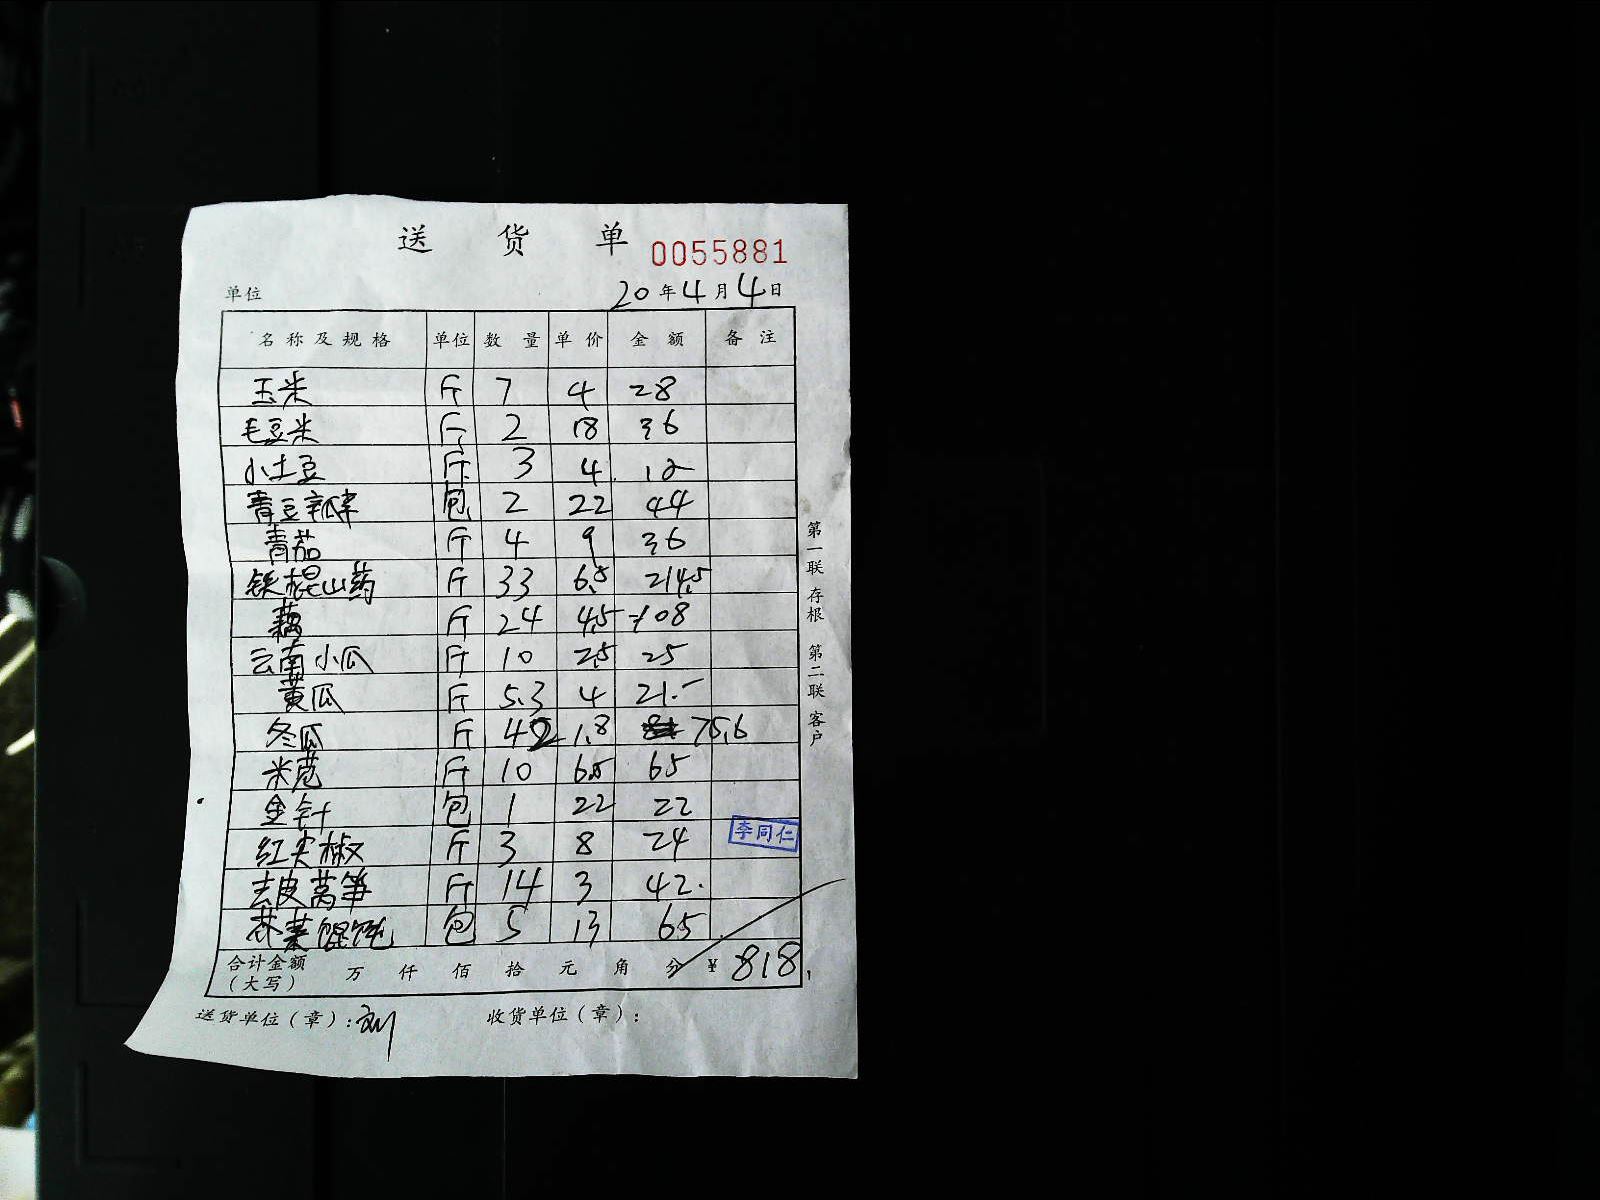 送 货 单 0055881
单位 20年4月4日
名称及规格 单位 数量 单价 金额 备注
玉米 斤 7 4 28
毛豆米 斤 2 18 36
小土豆 斤 3 4 12
青豆瓣 包 2 22 44
青茄 斤 4 9 36
铁棍山药 斤 33 6.5 214.5
藕 斤 24 4.5 108
云南小瓜 斤 10 2.5 25
黄瓜 斤 5.3 4 21.-
冬瓜 斤 42 1.8 75.6
米苋 斤 10 6.5 65
金针 包 1 22 22
红尖椒 斤 3 8 24
李同仁
去皮莴笋 斤 14 3 42.
荠菜馄饨 包 5 13 65
合计金额（大写） 万 仟 佰 拾 元 角 分 ¥ 818.
送货单位（章）：刘 收货单位（章）：
第一联 存根 第二联 客户